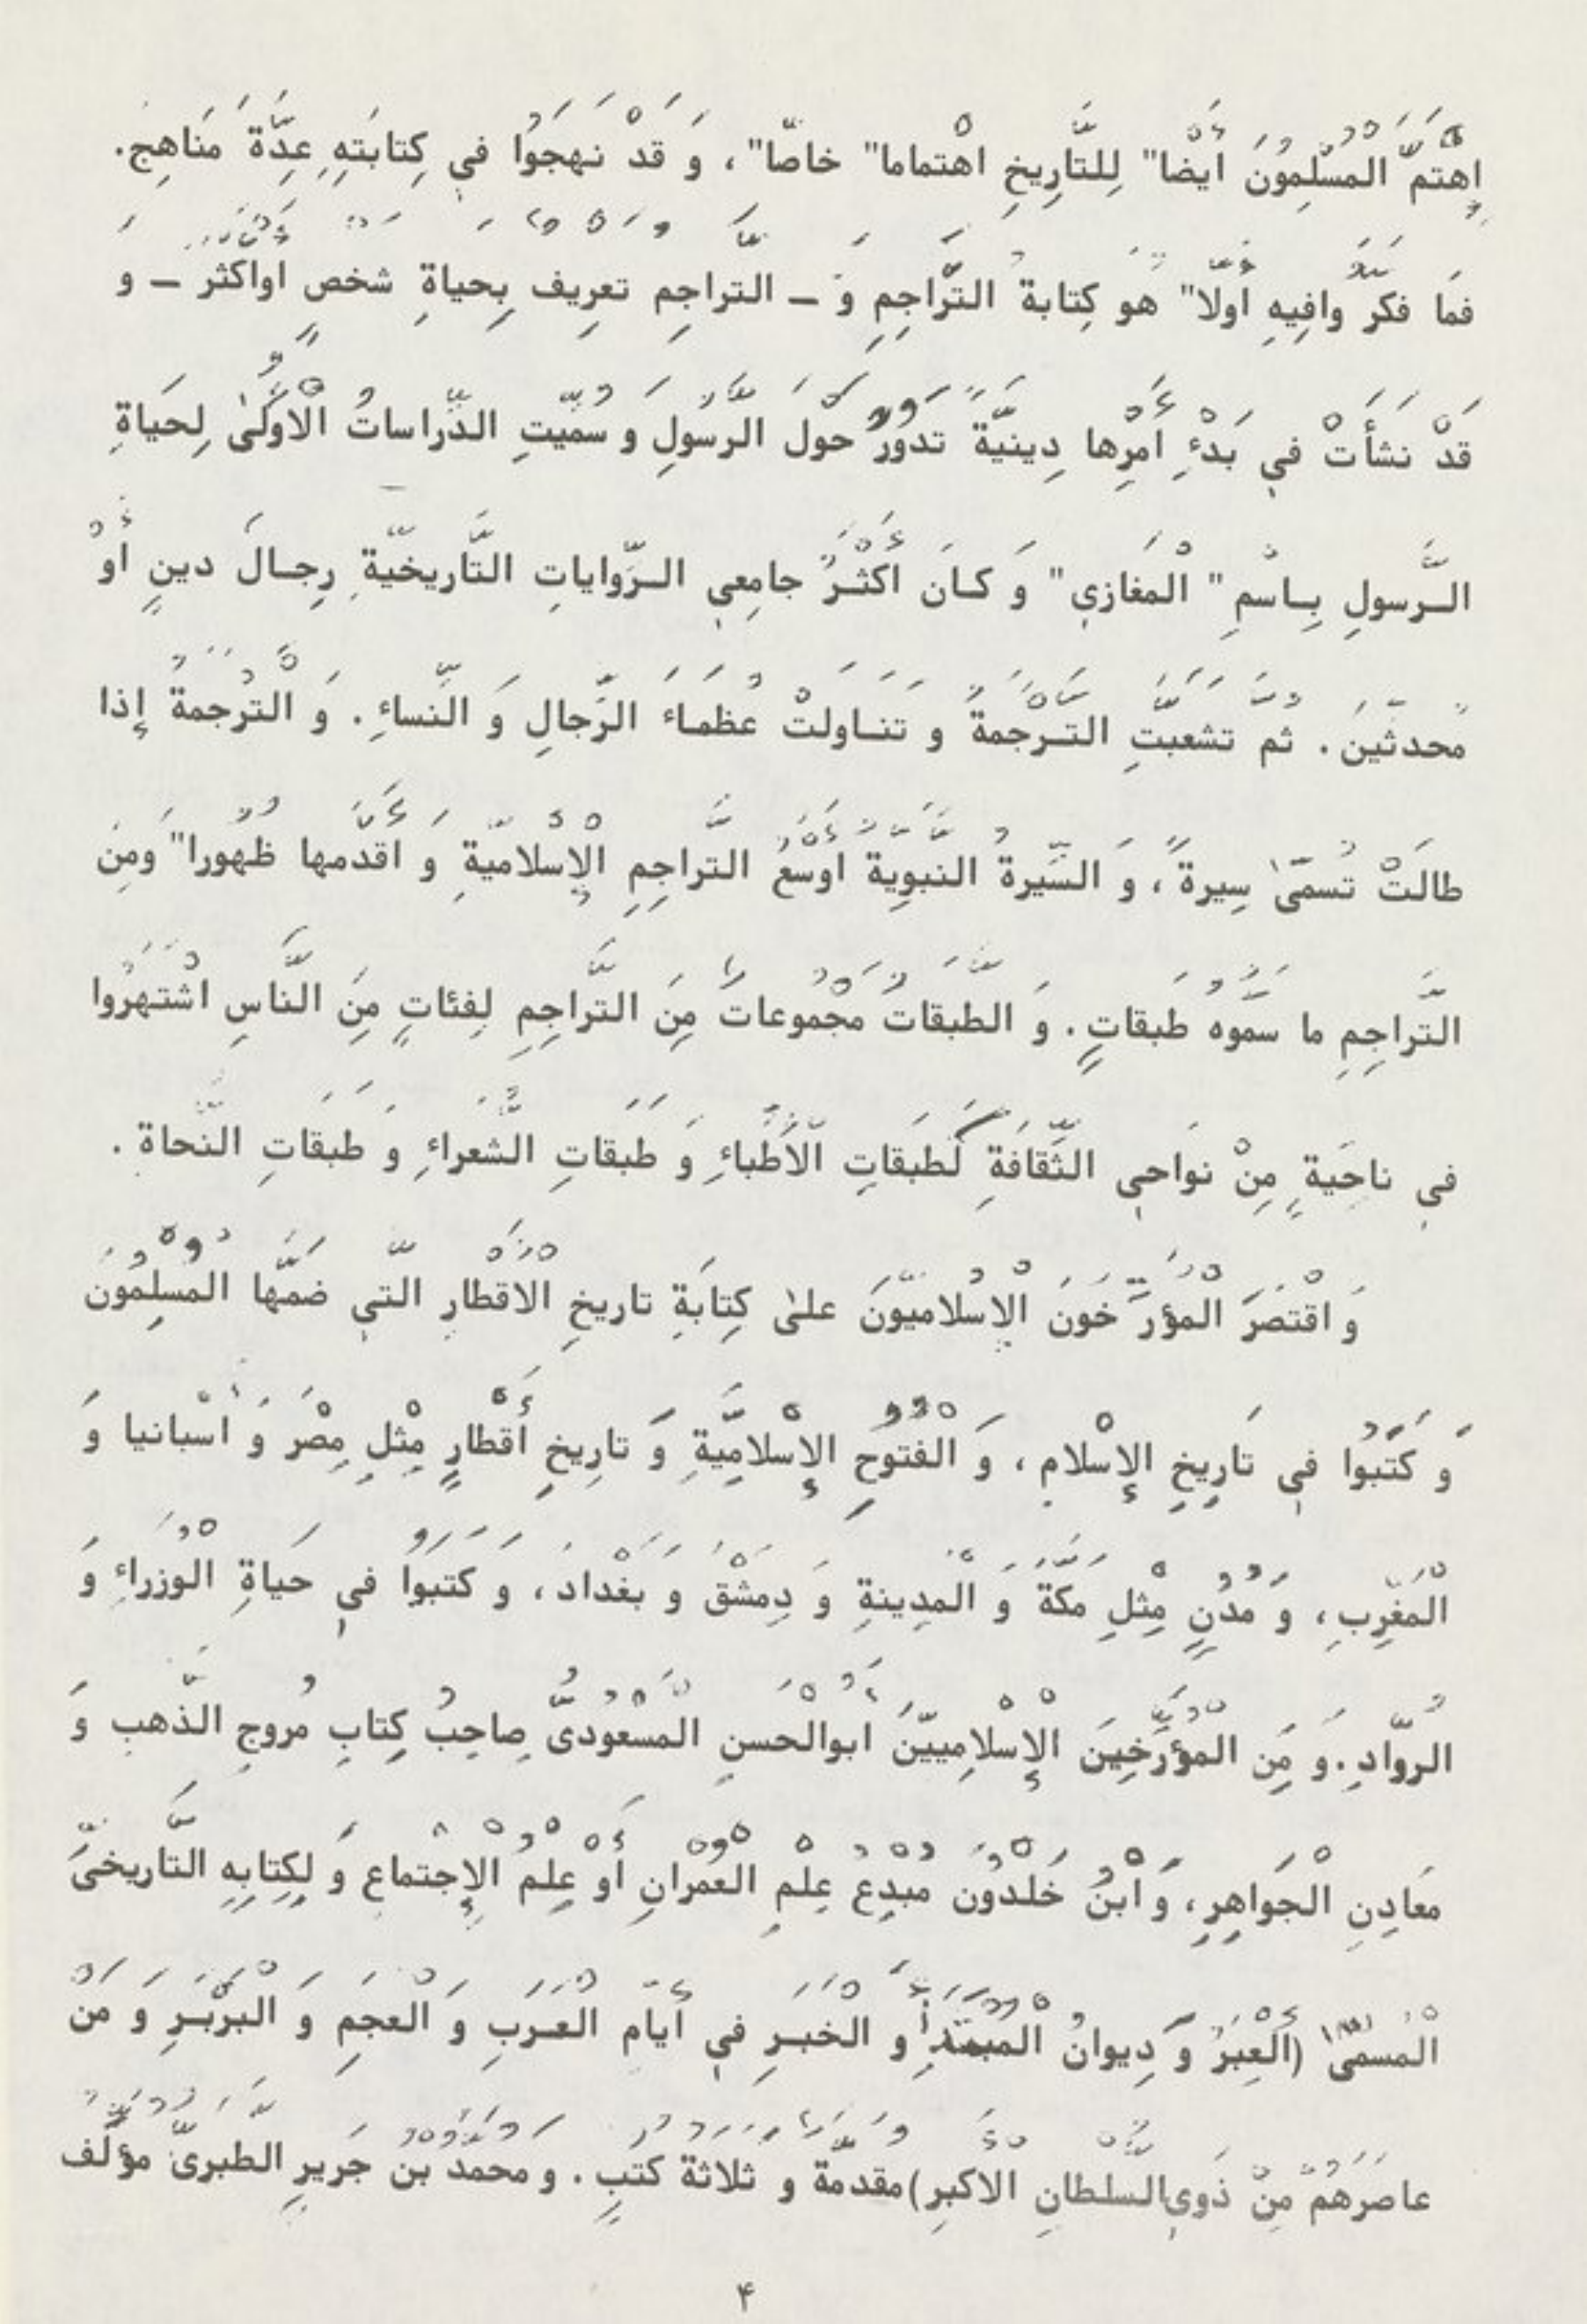 اِهْتَمَّ الْمُسْلِمُونَ اَيْضا" لِلتَّارِيخِ اهْتماما" خاصّا"، وَ قَدْ نَهَجَوُا في كِتابَتِهِ عِدَّةَ مَناهِجَ.
فَما فَكَّرَ وافِيهِ اَوّلا" هُوَ كِتابةُ التَّراجِمِ وَ – التَّراجِمِ تعرِيف بِحياةِ شخصٍ اواَكْثَر – وَ
قَدْ نَشَأَتْ في بَدْءِ اَمْرِها دِينيَّةً تَدُورُ حَوْلَ الرَّسُولِ وَ سُمّيتِ الدِّراساتُ الْاُولَىٰ لِحَياةِ
الرَّسولِ بِاسْمِ " الْمَغازي" وَ كانَ اَكْثَرُ جامِعي الرِّواياتِ التَّاريخيّةِ رِجالَ دينٍ أَوْ
مُحدثّينَ. ثُمَّ تَشَعَّبَتِ التَّرْجَمةُ وَ تَناوَلَتْ عُظَماءَ الرِّجالِ وَ النِّساءِ. وَ الْتَّرْجَمةُ إِذا
طالَتْ تُسمّىٰ سِيرةً، وَ السِّيرةُ النَّبَوِيَّةُ اَوْسَعُ التَّراجِمِ الْإِسْلاميّةِ وَ اَقْدَمَها ظُهورا" ومِنَ
التَّراجِمِ ما سَمَّوُه طَبَقاتٍ. وَ الطَّبَقاتُ مَجْمُوعاتٌ مِنَ التَّراجِمِ لِفئاتٍ مِنَ النَّاسِ اشْتَهَرُوا
في ناحِيَةٍ مِنْ نَواحي الثَّقافَةِ كَطَبَقاتِ الْاَطِبّاءِ وَ طَبَقاتِ الشُّعَراءِ وَ طَبَقاتِ النَّحاةِ.
وَ اقْتَصَرَ الْمُؤَرِّخُونَ الْاِسْلاميّونَ علىٰ كِتابَةِ تاريخِ الْاَقْطارِ الّتي ضَمَّها الْمُسْلِمُونَ
وَ كَتَبُوا في تَارِيخِ الإِسْلامِ، وَ الْفُتُوحِ الإِسْلامِيَّةِ وَ تارِيخِ أَقْطارٍ مِثْلِ مِصْرَ وَ اَسْبانيا وَ
الْمَغْرِبِ، وَ مُدُنٍ مِثْلِ مَكَّةَ وَ الْمَدِينةِ وَ دِمَشْقُ وَ بَغْدادَ، وَ كَتَبُوَا في حَياةِ الْوُزَراءِ وَ
الرُّوّادِ. و مِن الْمُؤَرَّخِينَ الْإِسْلامِييّنَ اَبُوالْحَسنِ الْمَسْعُودىُّ صاحِبُ كِتابِ مُروجِ الذَّهبِ وَ
مَعَادِنِ الْجَواهِرِ، وَ ابْنُ خَلْدُونَ مبْدِعُ عِلْمِ الْعُمْرانِ أَوْ عِلْمُ الْإِجْتماعِ وَ لِكِتابِهِ التَّاريخىِّ
الْمُسمىٰ (اَلْعِبَرُ وَ دِيوانُ الْمُبْتَدَأِ وَ الْخَبَرِ في أَيّام الْعَرَبِ وَ الْعجَمِ وَ الْبَرْبَرِ وَ مَنْ
عاصَرَهُمْ مِنْ ذَوي السُّلْطانِ الْاَكْبرِ) مُقَدَّمةٌ وَ ثَلاثَةُ كُتُبٍ. وَ مُحَمّدُ بْنُ جَريرِ الطَّبَرىّ مُؤَلِّفُ
۴